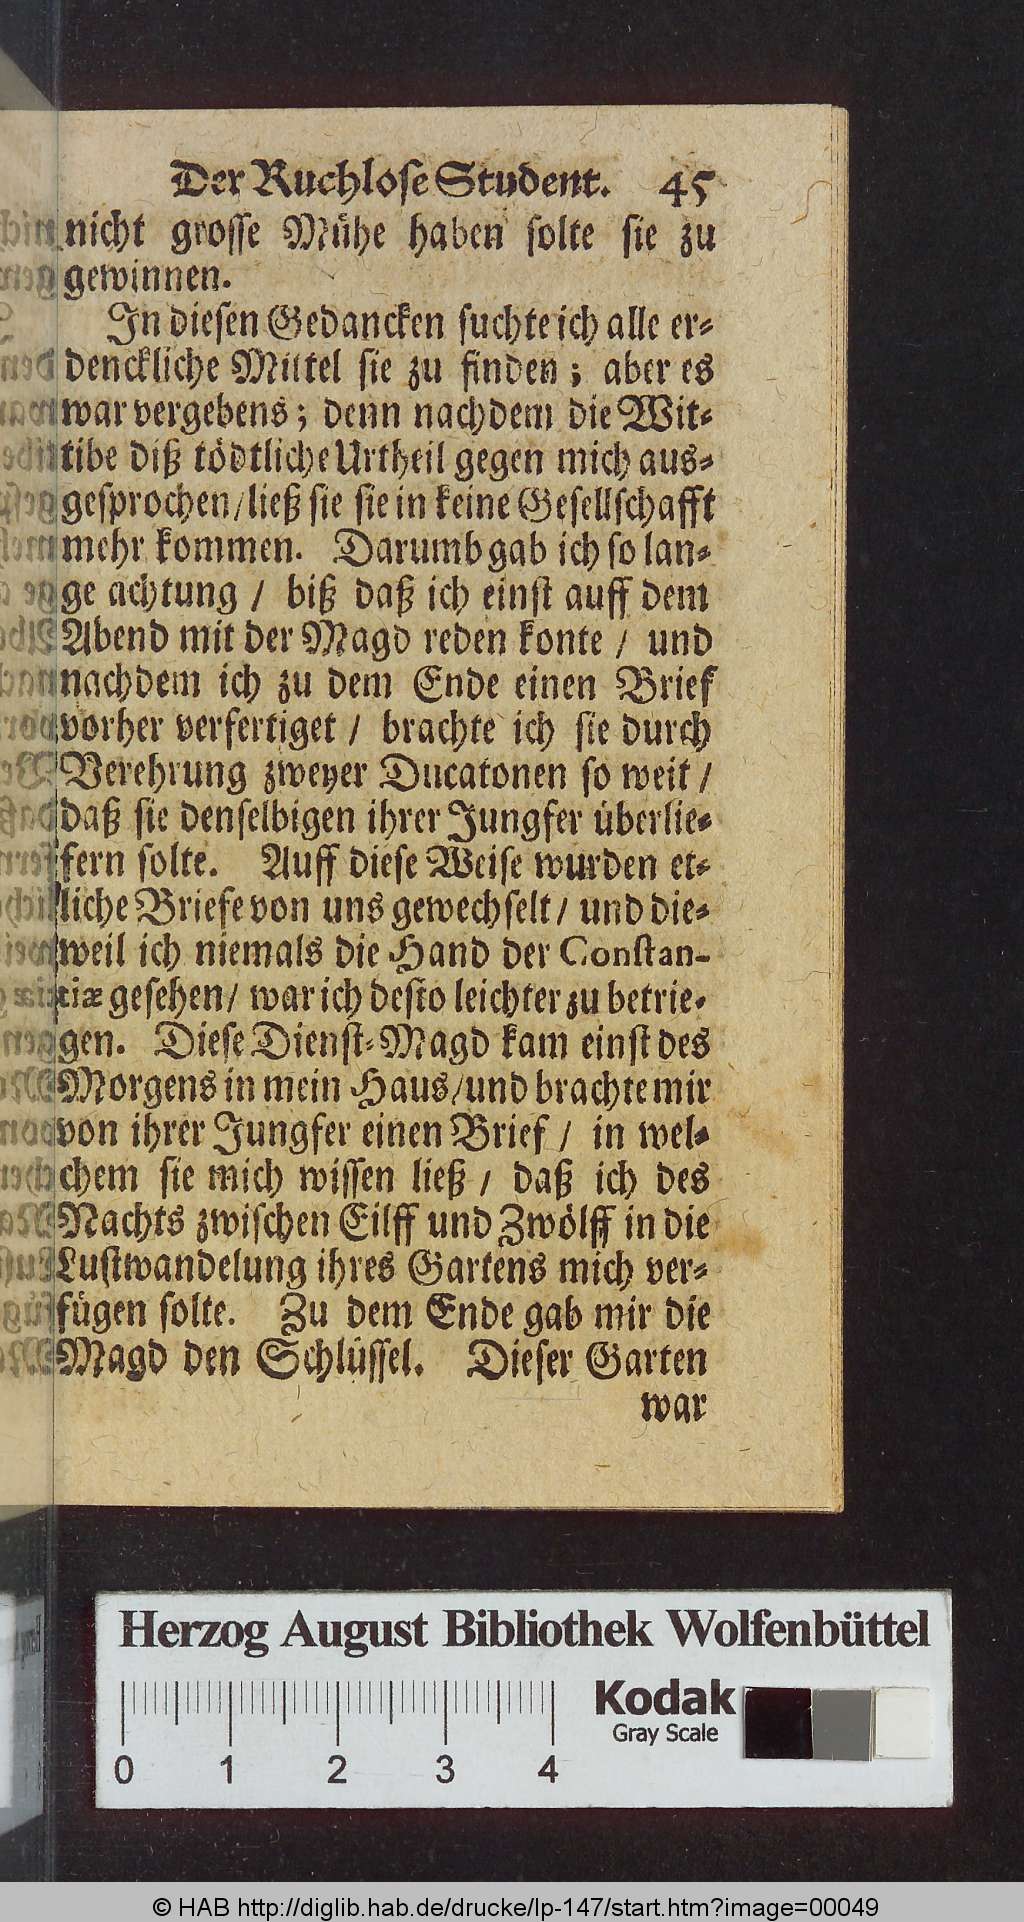 Der Ruchlose Student. 45
nicht grosse Mühe haben solte sie zu
gewinnen.
In diesen Gedancken suchte ich alle er-
denckliche Mittel sie zu finden; aber es
war vergebens; denn nachdem die Wit-
tibe diß tödtliche Urtheil gegen mich aus-
gesprochen/ ließ sie sie in keine Gesellschafft
mehr kommen. Darumb gab ich so lan-
ge achtung / biß daß ich einst auff dem
Abend mit der Magd reden konte / und
nachdem ich zu dem Ende einen Brief
vorher verfertiget / brachte ich sie durch
Verehrung zweyer Ducatonen so weit /
daß sie denselbigen ihrer Jungfer überlie-
fern solte. Auff diese Weise wurden et-
liche Briefe von uns gewechselt / und die-
weil ich niemals die Hand der Constan-
tiæ gesehen / war ich desto leichter zu betrie-
gen. Diese Dienst-Magd kam einst des
Morgens in mein Haus / und brachte mir
von ihrer Jungfer einen Brief / in wel-
chem sie mich wissen ließ / daß ich des
Nachts zwischen Eilff und Zwölff in die
Lustwandelung ihres Gartens mich ver-
fügen solte. Zu dem Ende gab mir die
Magd den Schlüssel. Dieser Garten
war
Herzog August Bibliothek Wolfenbüttel
Kodak
Gray Scale
0 1 2 3 4
© HAB http://diglib.hab.de/drucke/lp-147/start.htm?image=00049